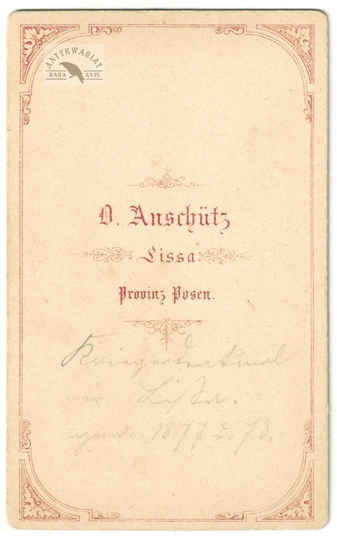 ANTYKWARIAT
RARA AVIS
O. Anschütz
Lissa
Provinz Posen.
Kriegerdenkmal
in Lissa.
1877 u. 78.